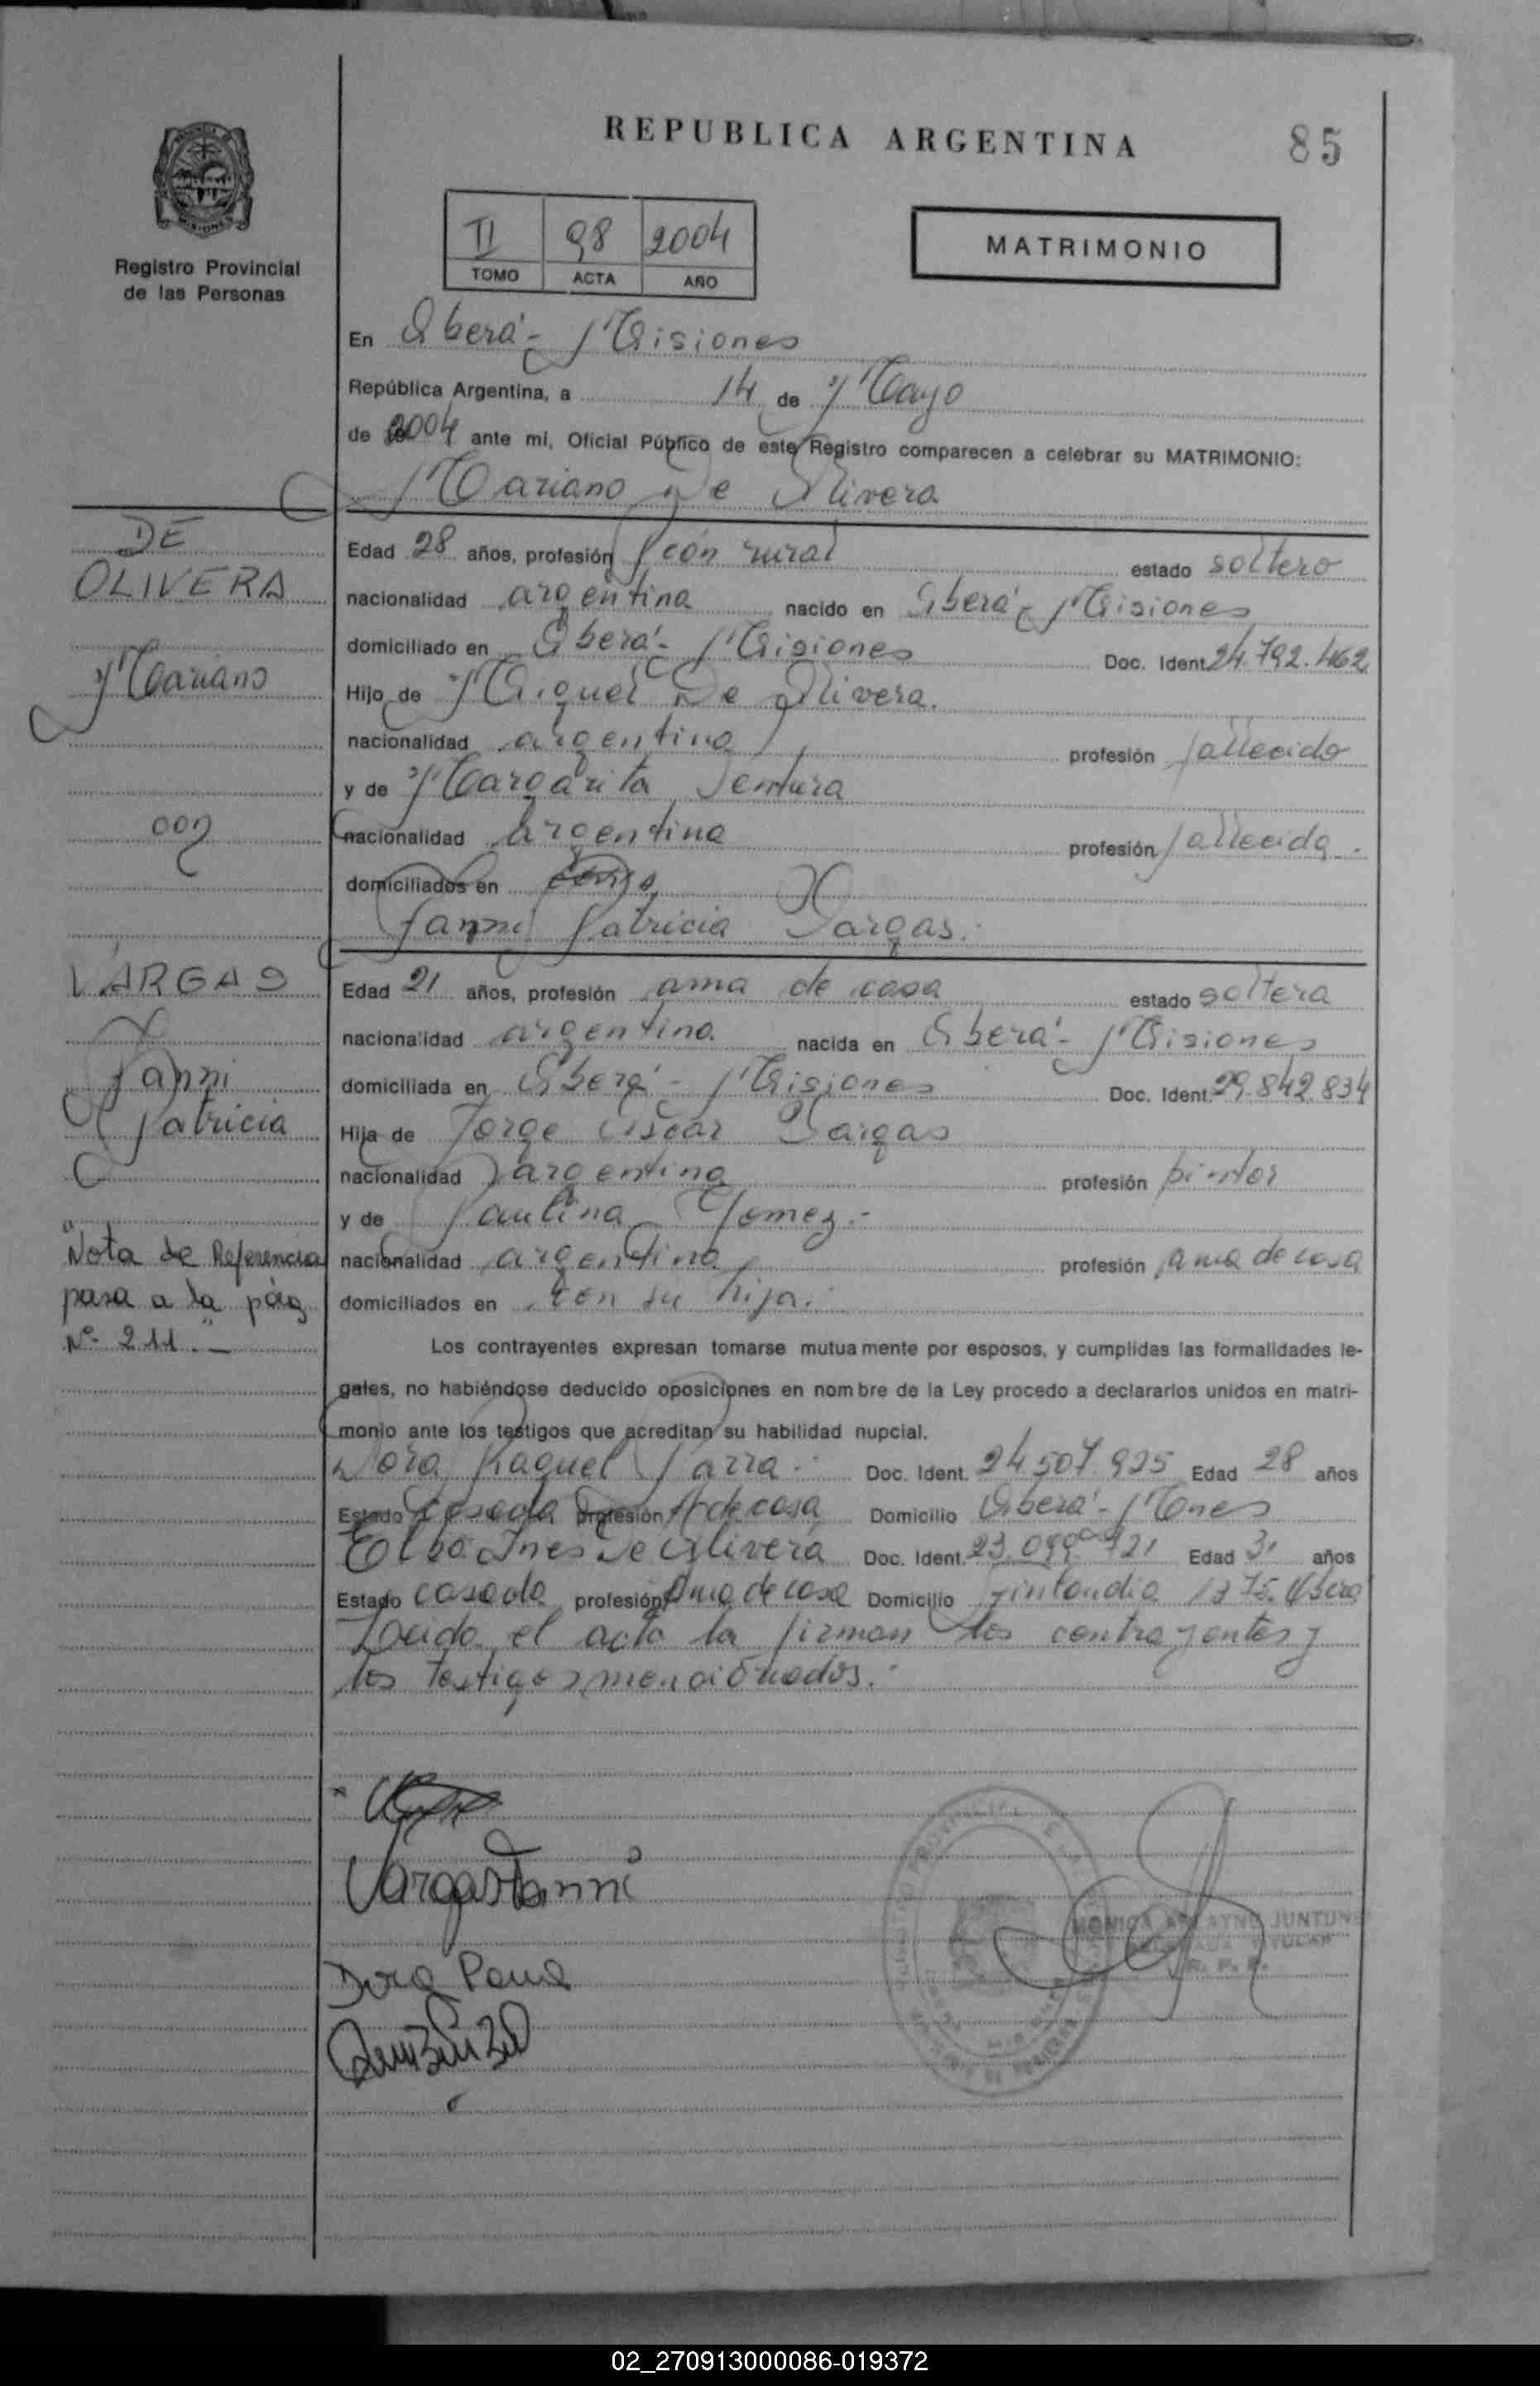 REPUBLICA ARGENTINA
85
Registro Provincial
de las Personas
II 98 2004
TOMO ACTA AÑO
MATRIMONIO
En Oberá - Misiones
República Argentina, a 14 de Mayo
de 2004 ante mí, Oficial Público de este Registro comparecen a celebrar su MATRIMONIO:
Mariano De Olivera
DE
OLIVERA
Mariano
con
Edad 28 años, profesión Peón rural estado soltero
nacionalidad argentina nacido en Oberá - Misiones
domiciliado en Oberá - Misiones Doc. Ident. 24.792.462
Hijo de Miguel De Olivera.
nacionalidad argentina profesión fallecido
y de Margarita Ventura
nacionalidad Argentina profesión fallecida.
domiciliados en
Yanni Patricia Vargas.
VARGAS
Yanni
Patricia
Edad 21 años, profesión ama de casa estado soltera
nacionalidad argentina nacida en Oberá - Misiones
domiciliada en Oberá - Misiones Doc. Ident. 29.842.834
Hija de Jorge Oscar Vargas
nacionalidad argentina profesión pintor
y de Paulina Gomez.-
nacionalidad argentina profesión ama de casa
domiciliados en con su hija.
"Nota de Referencia
pasa a la pág
Nº 211".-
Los contrayentes expresan tomarse mutuamente por esposos, y cumplidas las formalidades le-
gales, no habiéndose deducido oposiciones en nombre de la Ley procedo a declararlos unidos en matri-
monio ante los testigos que acreditan su habilidad nupcial.
Dora Raquel Parra.- Doc. Ident. 24.507.925 Edad 28 años
Estado Casada profesión A de casa Domicilio Oberá - Mnes
Elba Ines De Olivera Doc. Ident. 23.099.721 Edad 31 años
Estado casada profesión Ama de casa Domicilio Finlandia 1375. Oberá
Leida el acta la firman los contrayentes y
los testigos mencionados.-
Vargas Yanni
Dora Parra
JUNTUN
TITULAR
R. P. P.
02_270913000086-019372